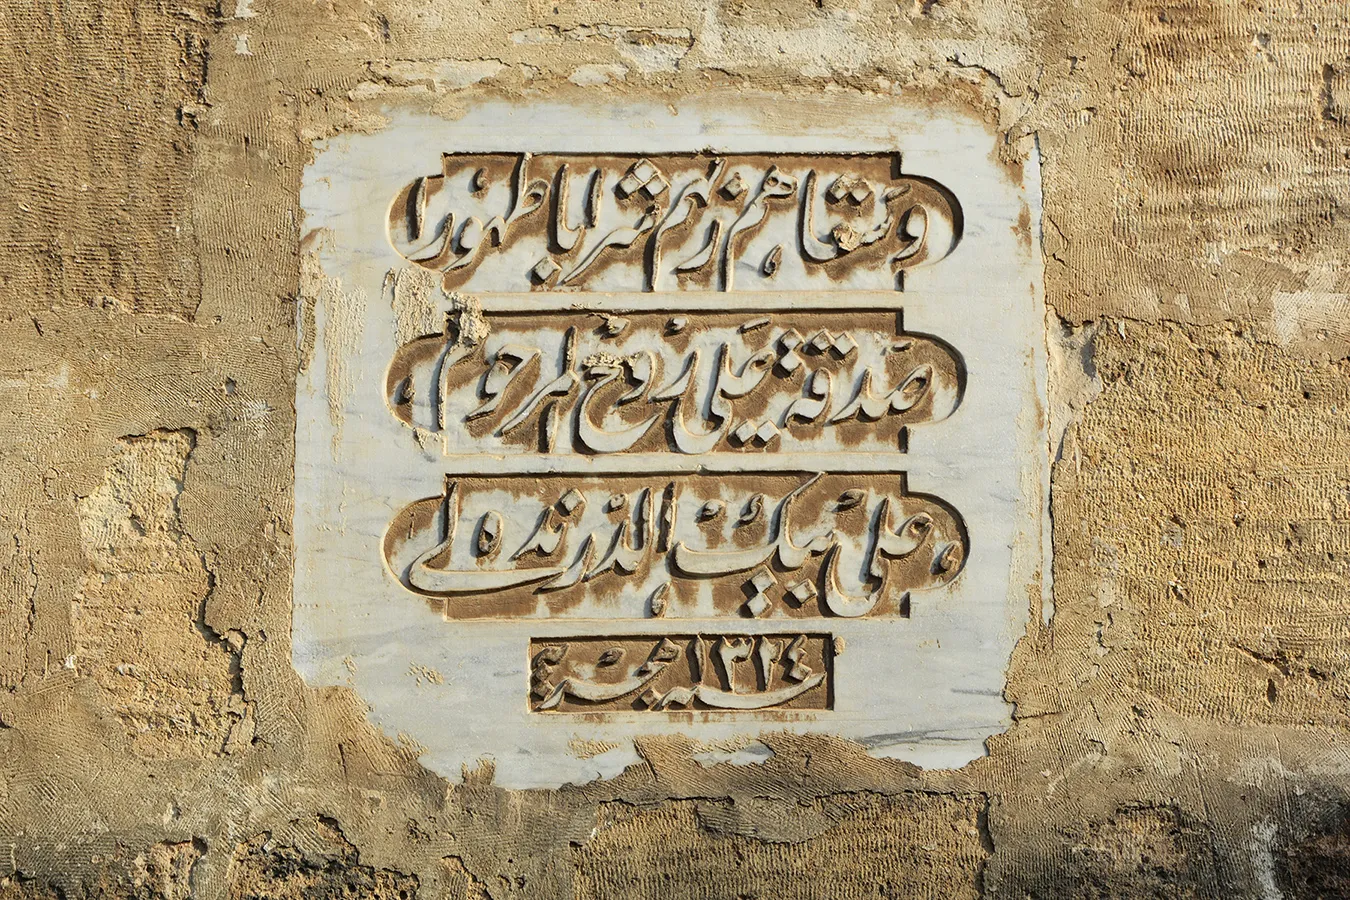 وسقاهم ربهم شرابا طهورا
صدقة على روح المرحوم
على بيك الدرنده لى
سنه ١٣٢٤